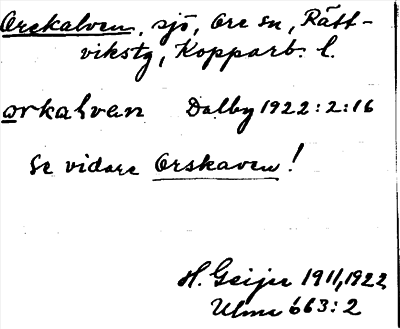 Orskalven, sjö, Ore sn, Rätt-
vikstg, Kopparb. l.
orkalven Dalby 1922:2:16
Se vidare Orskaven!
H. Geijer 1911, 1922
Ulma 663:2